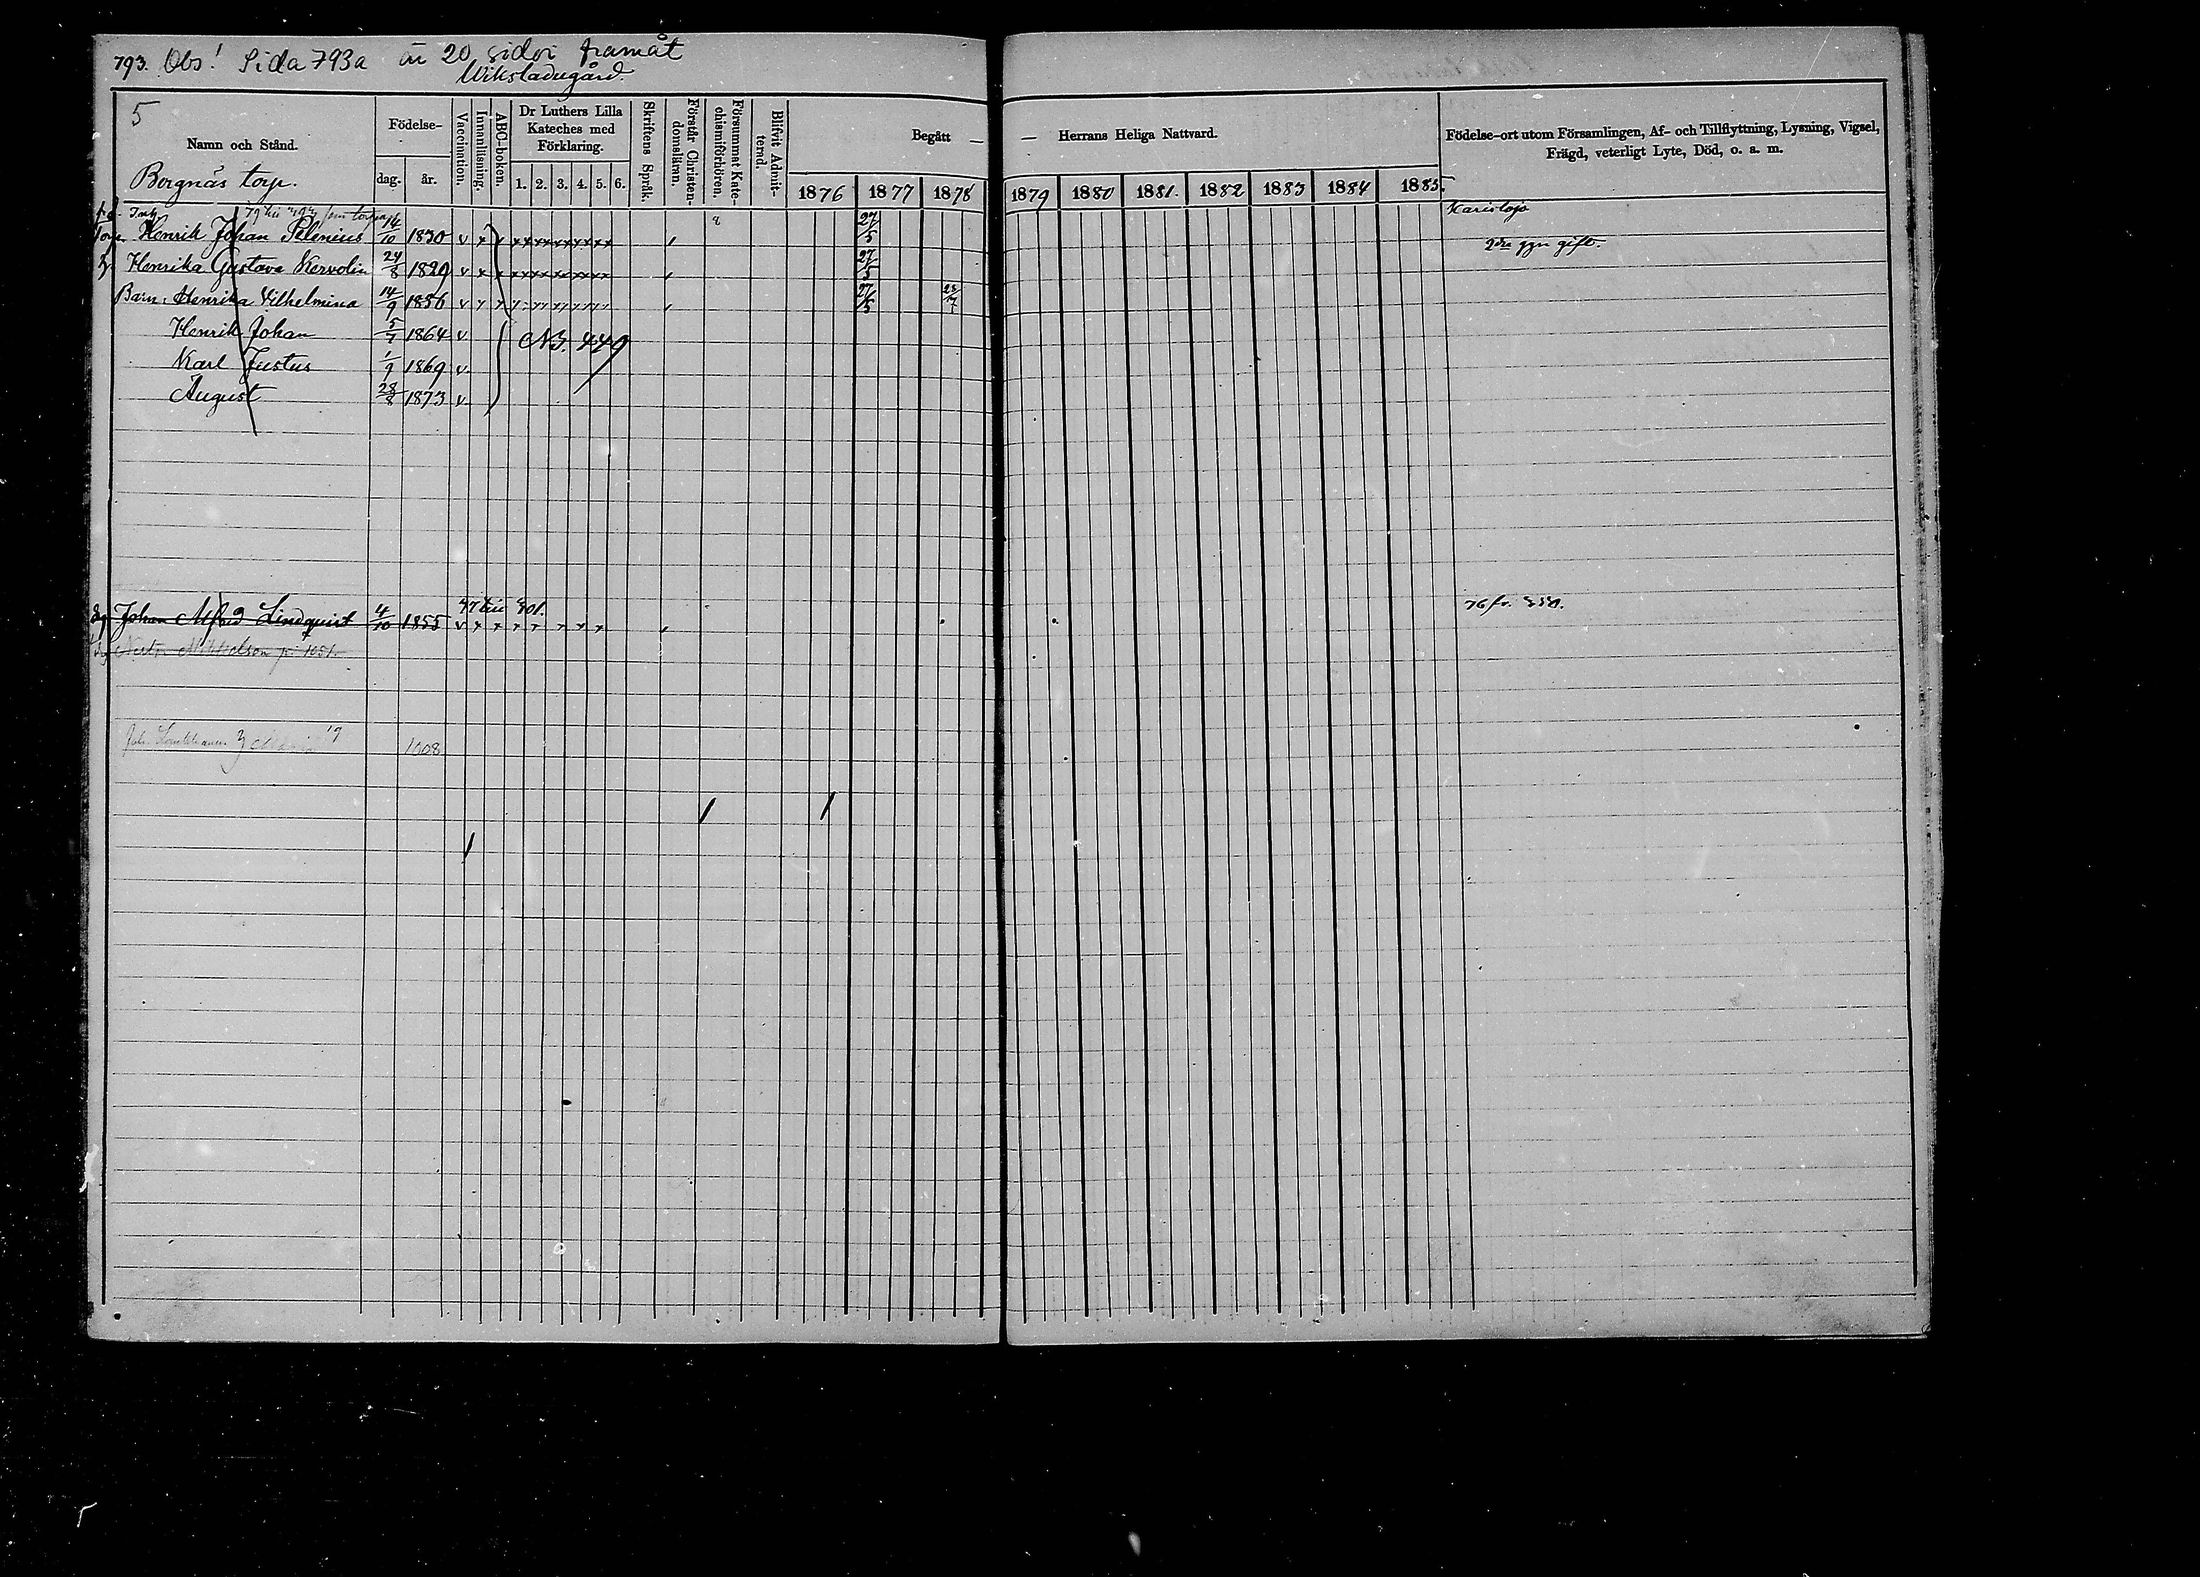 793. Obs! Sida 793a är 20 sidor framåt
Wiksladugård.
5
Namn och Stånd.
Födelse-
dag.
år.
Vaccination.
Innanläsning.
ABC-boken.
Dr Luthers Lilla
Kateches med
Förklaring.
1. 2. 3. 4. 5. 6.
Skriftens Språk.
Förstår Christen-
domsläran.
Försummat Kate-
chismiförhören.
Blifvit Admit-
terad.
Begått —
— Herrans Heliga Nattvard.
1876 1877 1878
1879 1880 1881. 1882 1883 1884 1885
Födelse-ort utom Församlingen, Af- och Tillflyttning, Lysning, Vigsel,
Frägd, veterligt Lyte, Död, o. s. m.
Borgnäs torp.
Karislojo
Torp. Henrik Johan Selenius 14/10 1830 v 27/5 2dra ggn gift.
Henrika Gustava Kervolin 24/8 1829 v 27/5
Barn: Henrika Vilhelmina 14/9 1856 v 27/5
Henrik Johan 5/7 1864 v N3. 449
Karl Justus 1/9 1869 v
August 28/8 1873 v
77 till 401.
Johan Alfred Lindquist 4/10 1855 v 76 fr.
1008